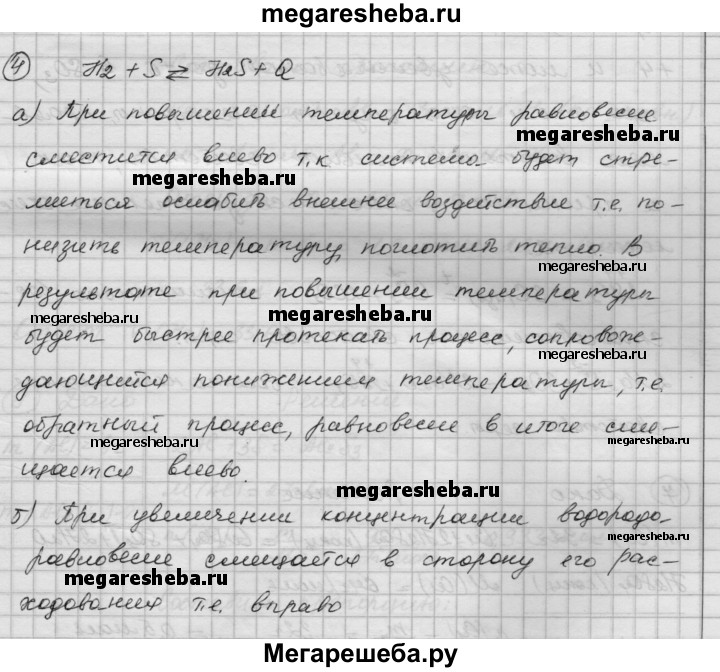 megaresheba.ru
4) H2 + S ⇄ H2S + Q
а) При повышении температуры равновесие
megaresheba.ru
сместится влево т.к система будет стре-
megaresheba.ru
миться ослабить внешнее воздействие т.е. по-
низить температуру, поглотить тепло. В
megaresheba.ru
результате при повышении температуры
megaresheba.ru megaresheba.ru
будет быстрее протекать процесс, сопровож-
megaresheba.ru
дающийся понижением температуры, т.е.
обратный процесс, равновесие в итоге сме-
megaresheba.ru megaresheba.ru
щается влево.
megaresheba.ru
б) При увеличении концентрации водорода
равновесие смещается в сторону его рас-
megaresheba.ru
ходования т.е. вправо
Мегарешеба.ру